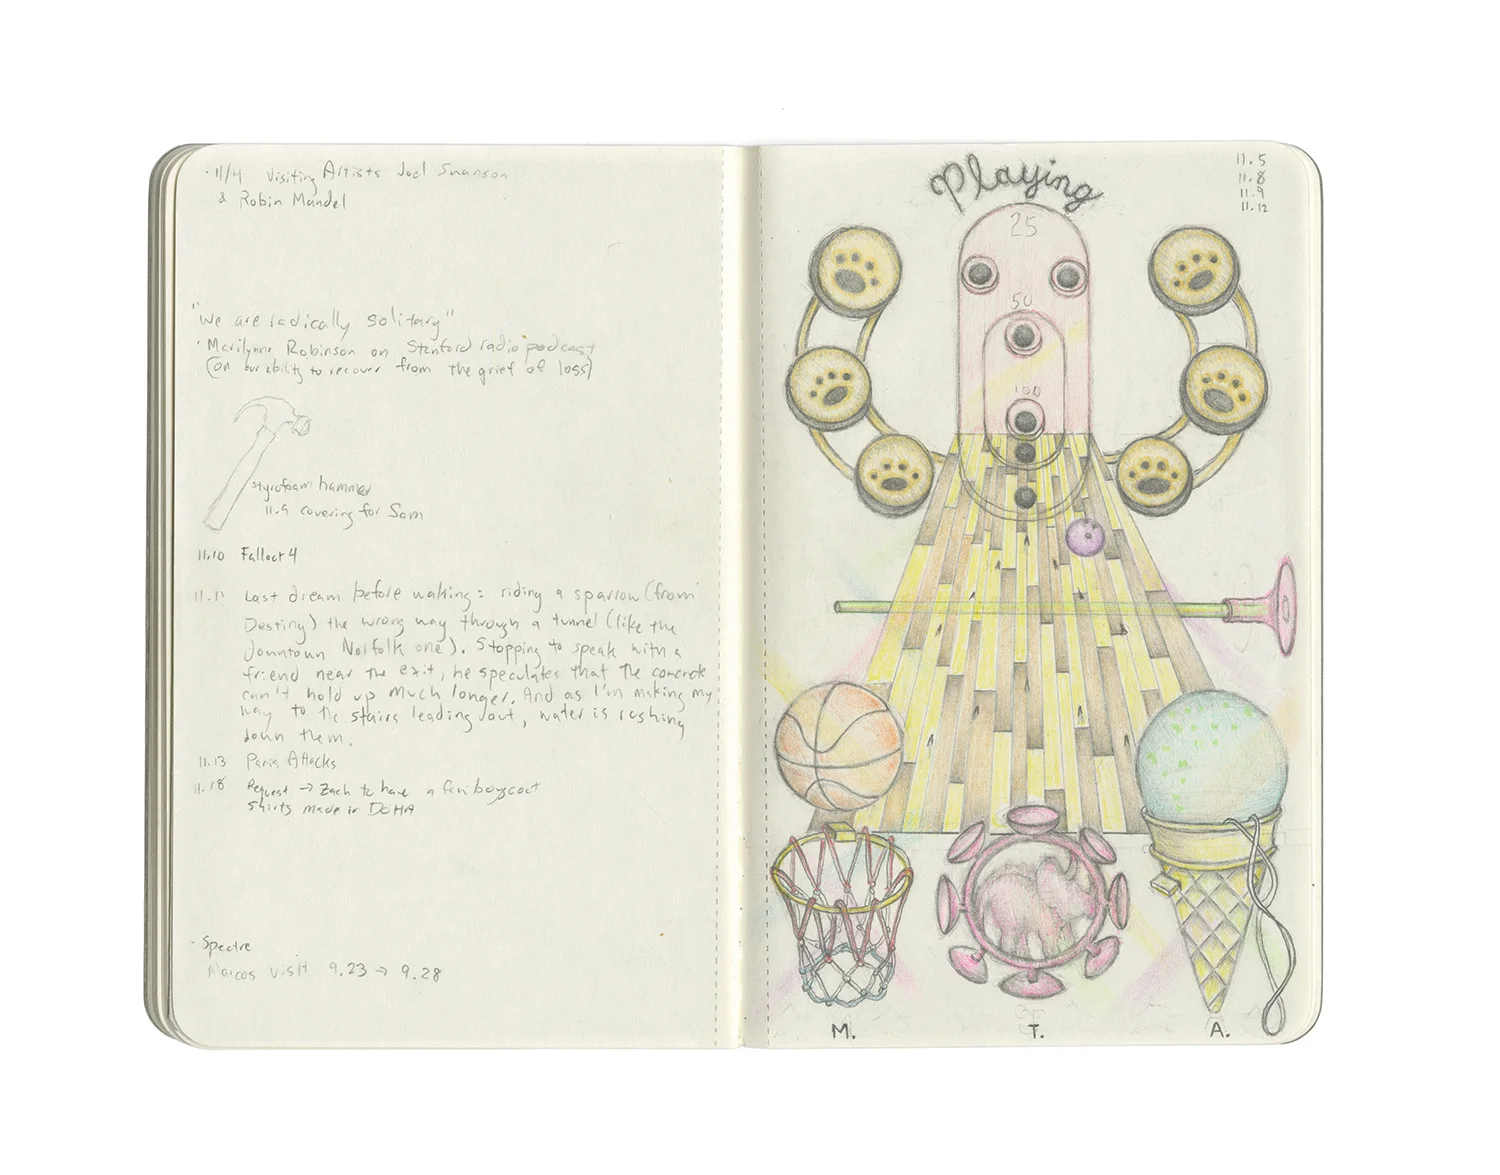 · 11/4 Visiting Artists Joel Swanson
& Robin Mandel
"We are radically solitary"
· Marilynne Robinson on Stanford radio podcast
(on our ability to recover from the grief of loss)
styrofoam hammer
11.9 covering for Sam
11.10 Fallout 4
11.11 Last dream before waking: riding a sparrow (from
Destiny) the wrong way through a tunnel (like the
downtown Norfolk one). Stopping to speak with a
friend near the exit, he speculates that the concrete
can't hold up much longer. And as I'm making my
way to the stairs leading out, water is rushing
down them.
11.13 Paris Attacks
11.18 Request → Zach to have a few boycott
shirts made in DOHA
· Spectre
Marcos visit 9.23 → 9.28
Playing
11.5
11.8
11.9
11.12
25
50
100
M. T. A.